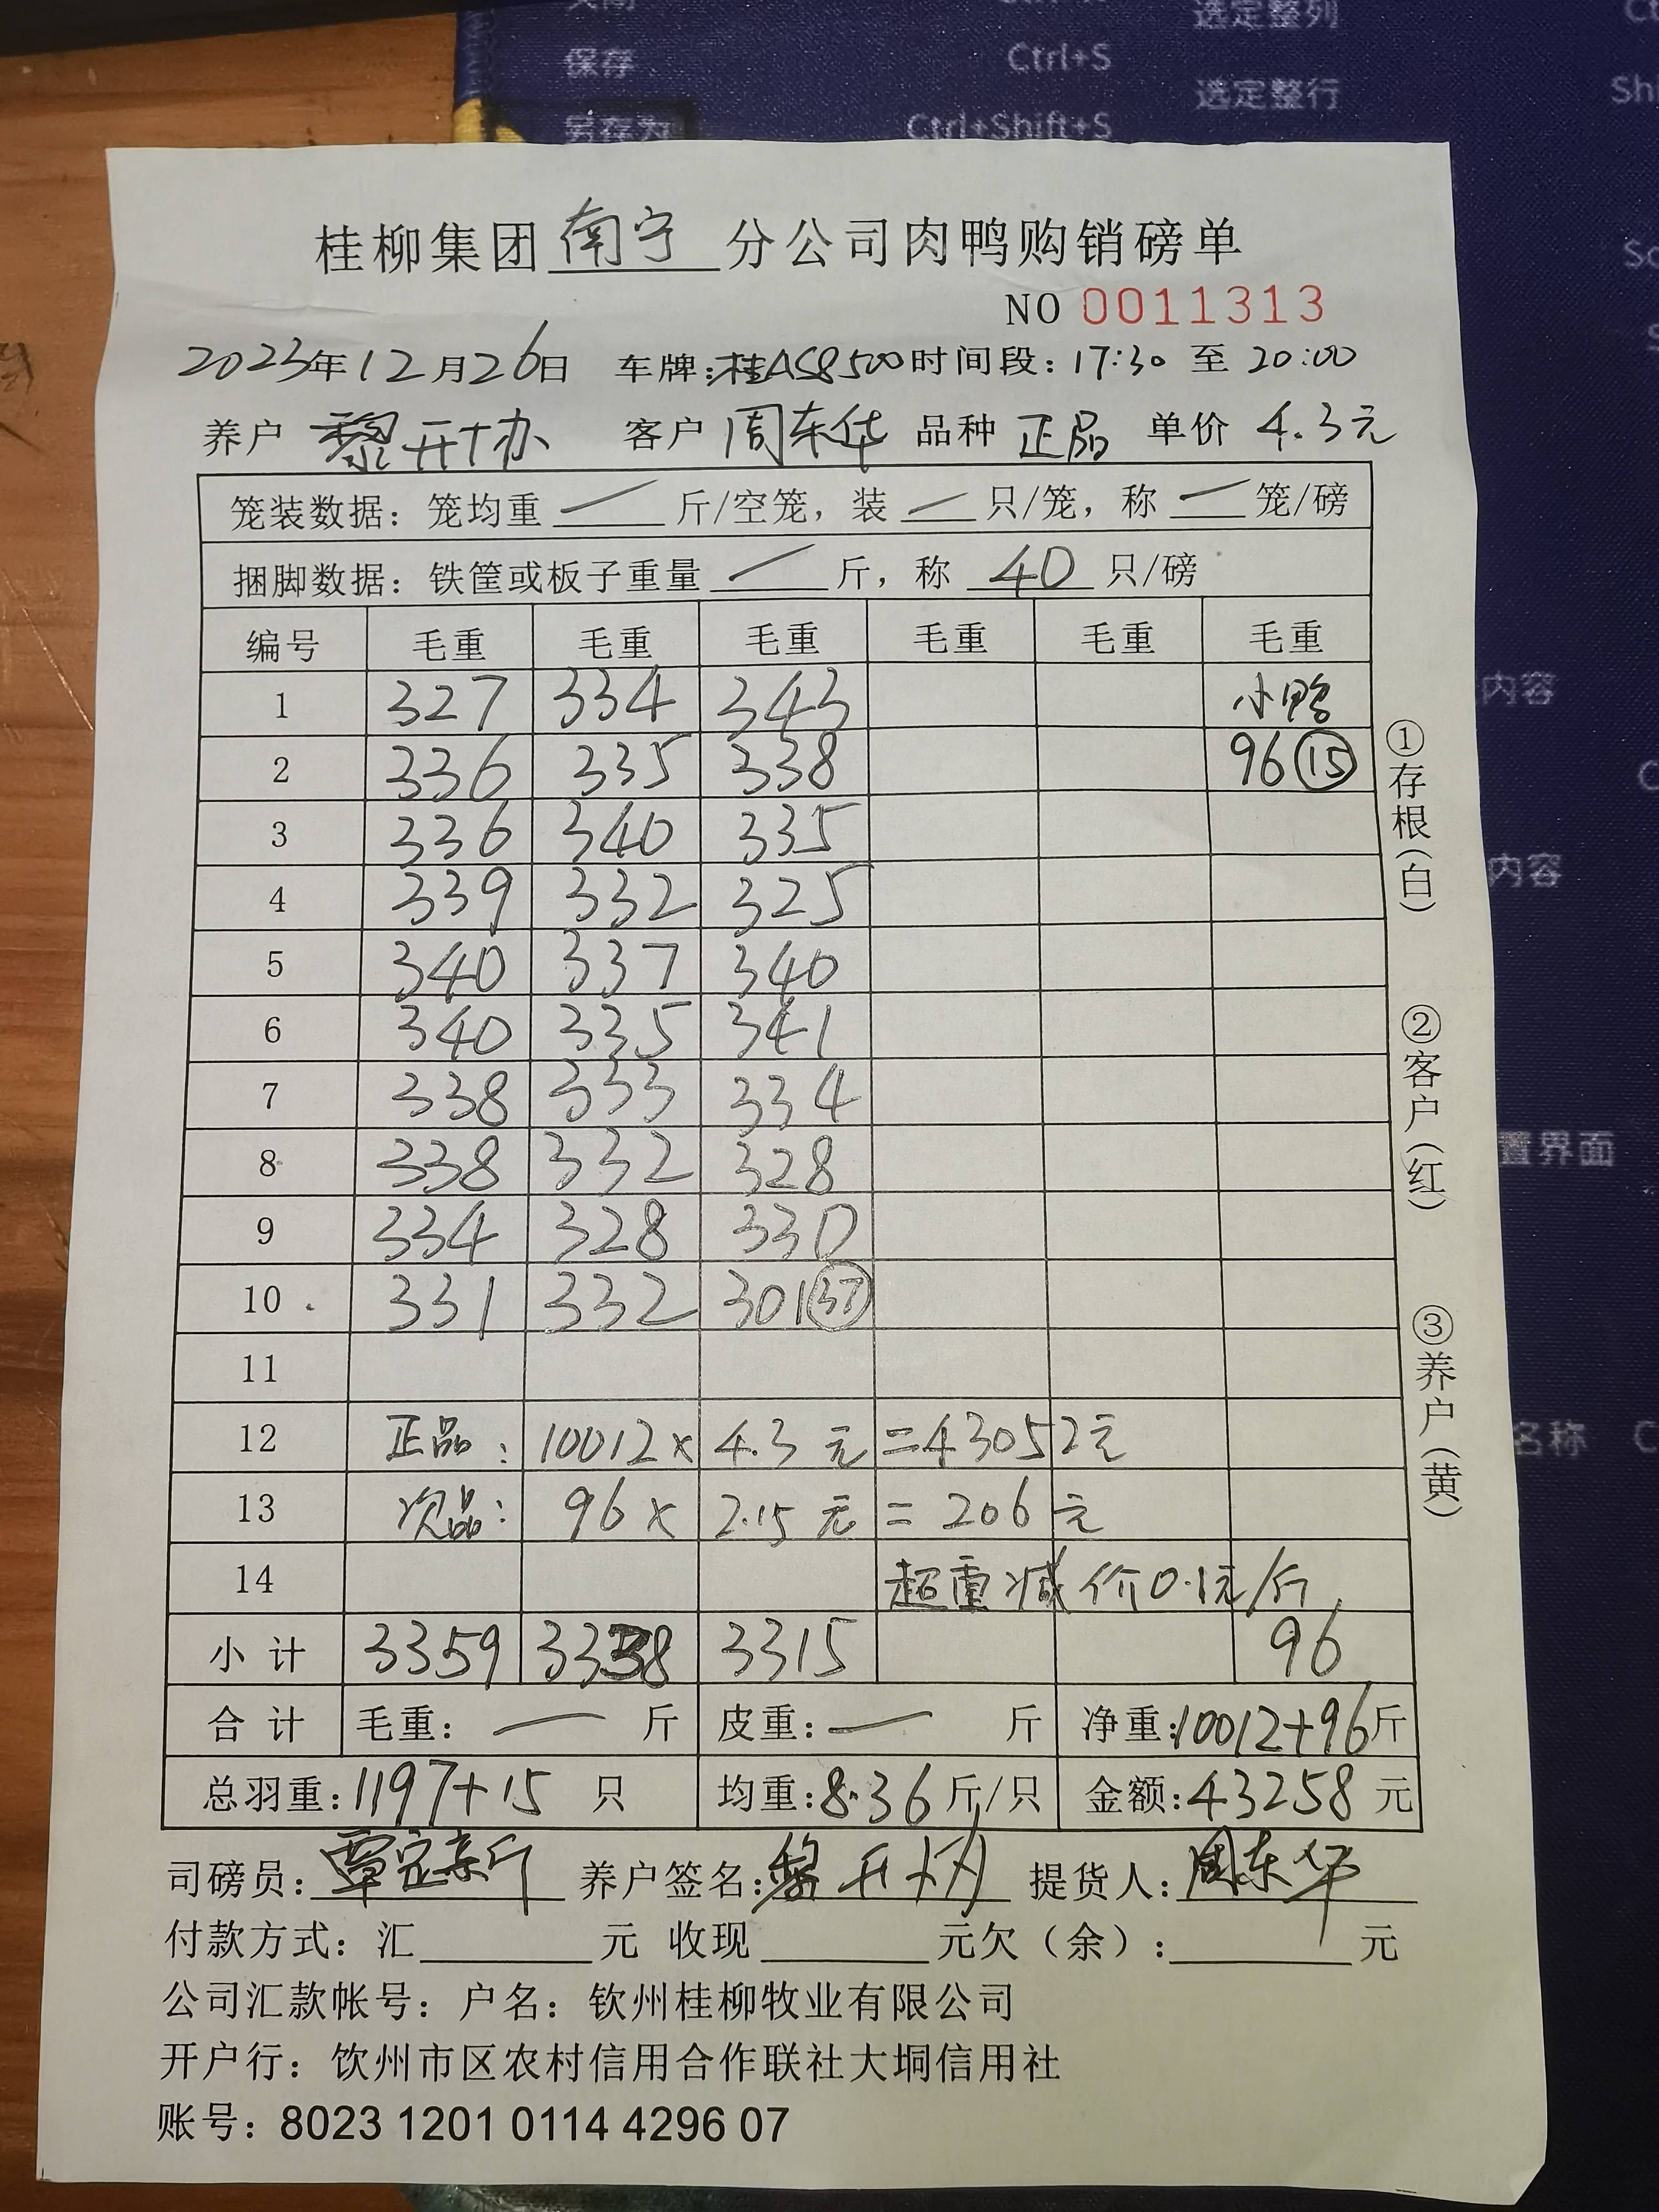 保存 Ctrl+S 选定整列
另存为 Ctrl+Shift+S 选定整行
桂柳集团南宁分公司肉鸭购销磅单
NO 0011313
2023年12月26日 车牌:桂AS8500时间段:17:30 至 20:00
养户 黎开 客户 周东华 品种 正品 单价 4.3元
笼装数据:笼均重 — 斤/空笼,装 — 只/笼,称 — 笼/磅
捆脚数据:铁筐或板子重量 — 斤,称 40 只/磅
编号 毛重 毛重 毛重 毛重 毛重 毛重
1 327 334 343 小鸭
2 336 335 338 96 ⑮
3 336 340 335
4 339 332 325
5 340 337 340
6 340 335 341
7 338 333 334
8 338 332 328
9 334 328 330
10 331 332 301 ㊲
11
12 正品: 10012× 4.3 元 =43052元
13 次品: 96 × 2.15 元 = 206 元
14 超重减价0.1元/斤
小计 3359 3338 3315 96
合计 毛重: — 斤 皮重: — 斤 净重:10012+96斤
总羽重:1197+15 只 均重:8.36 斤/只 金额:43258 元
司磅员:覃定新 养户签名:黎开 提货人:周东华
付款方式:汇 元 收现 元欠(余): 元
公司汇款帐号:户名:钦州桂柳牧业有限公司
开户行:饮州市区农村信用合作联社大垌信用社
账号:8023 1201 0114 4296 07
①存根(白)
②客户(红)
③养户(黄)
内容
内容
置界面
名称